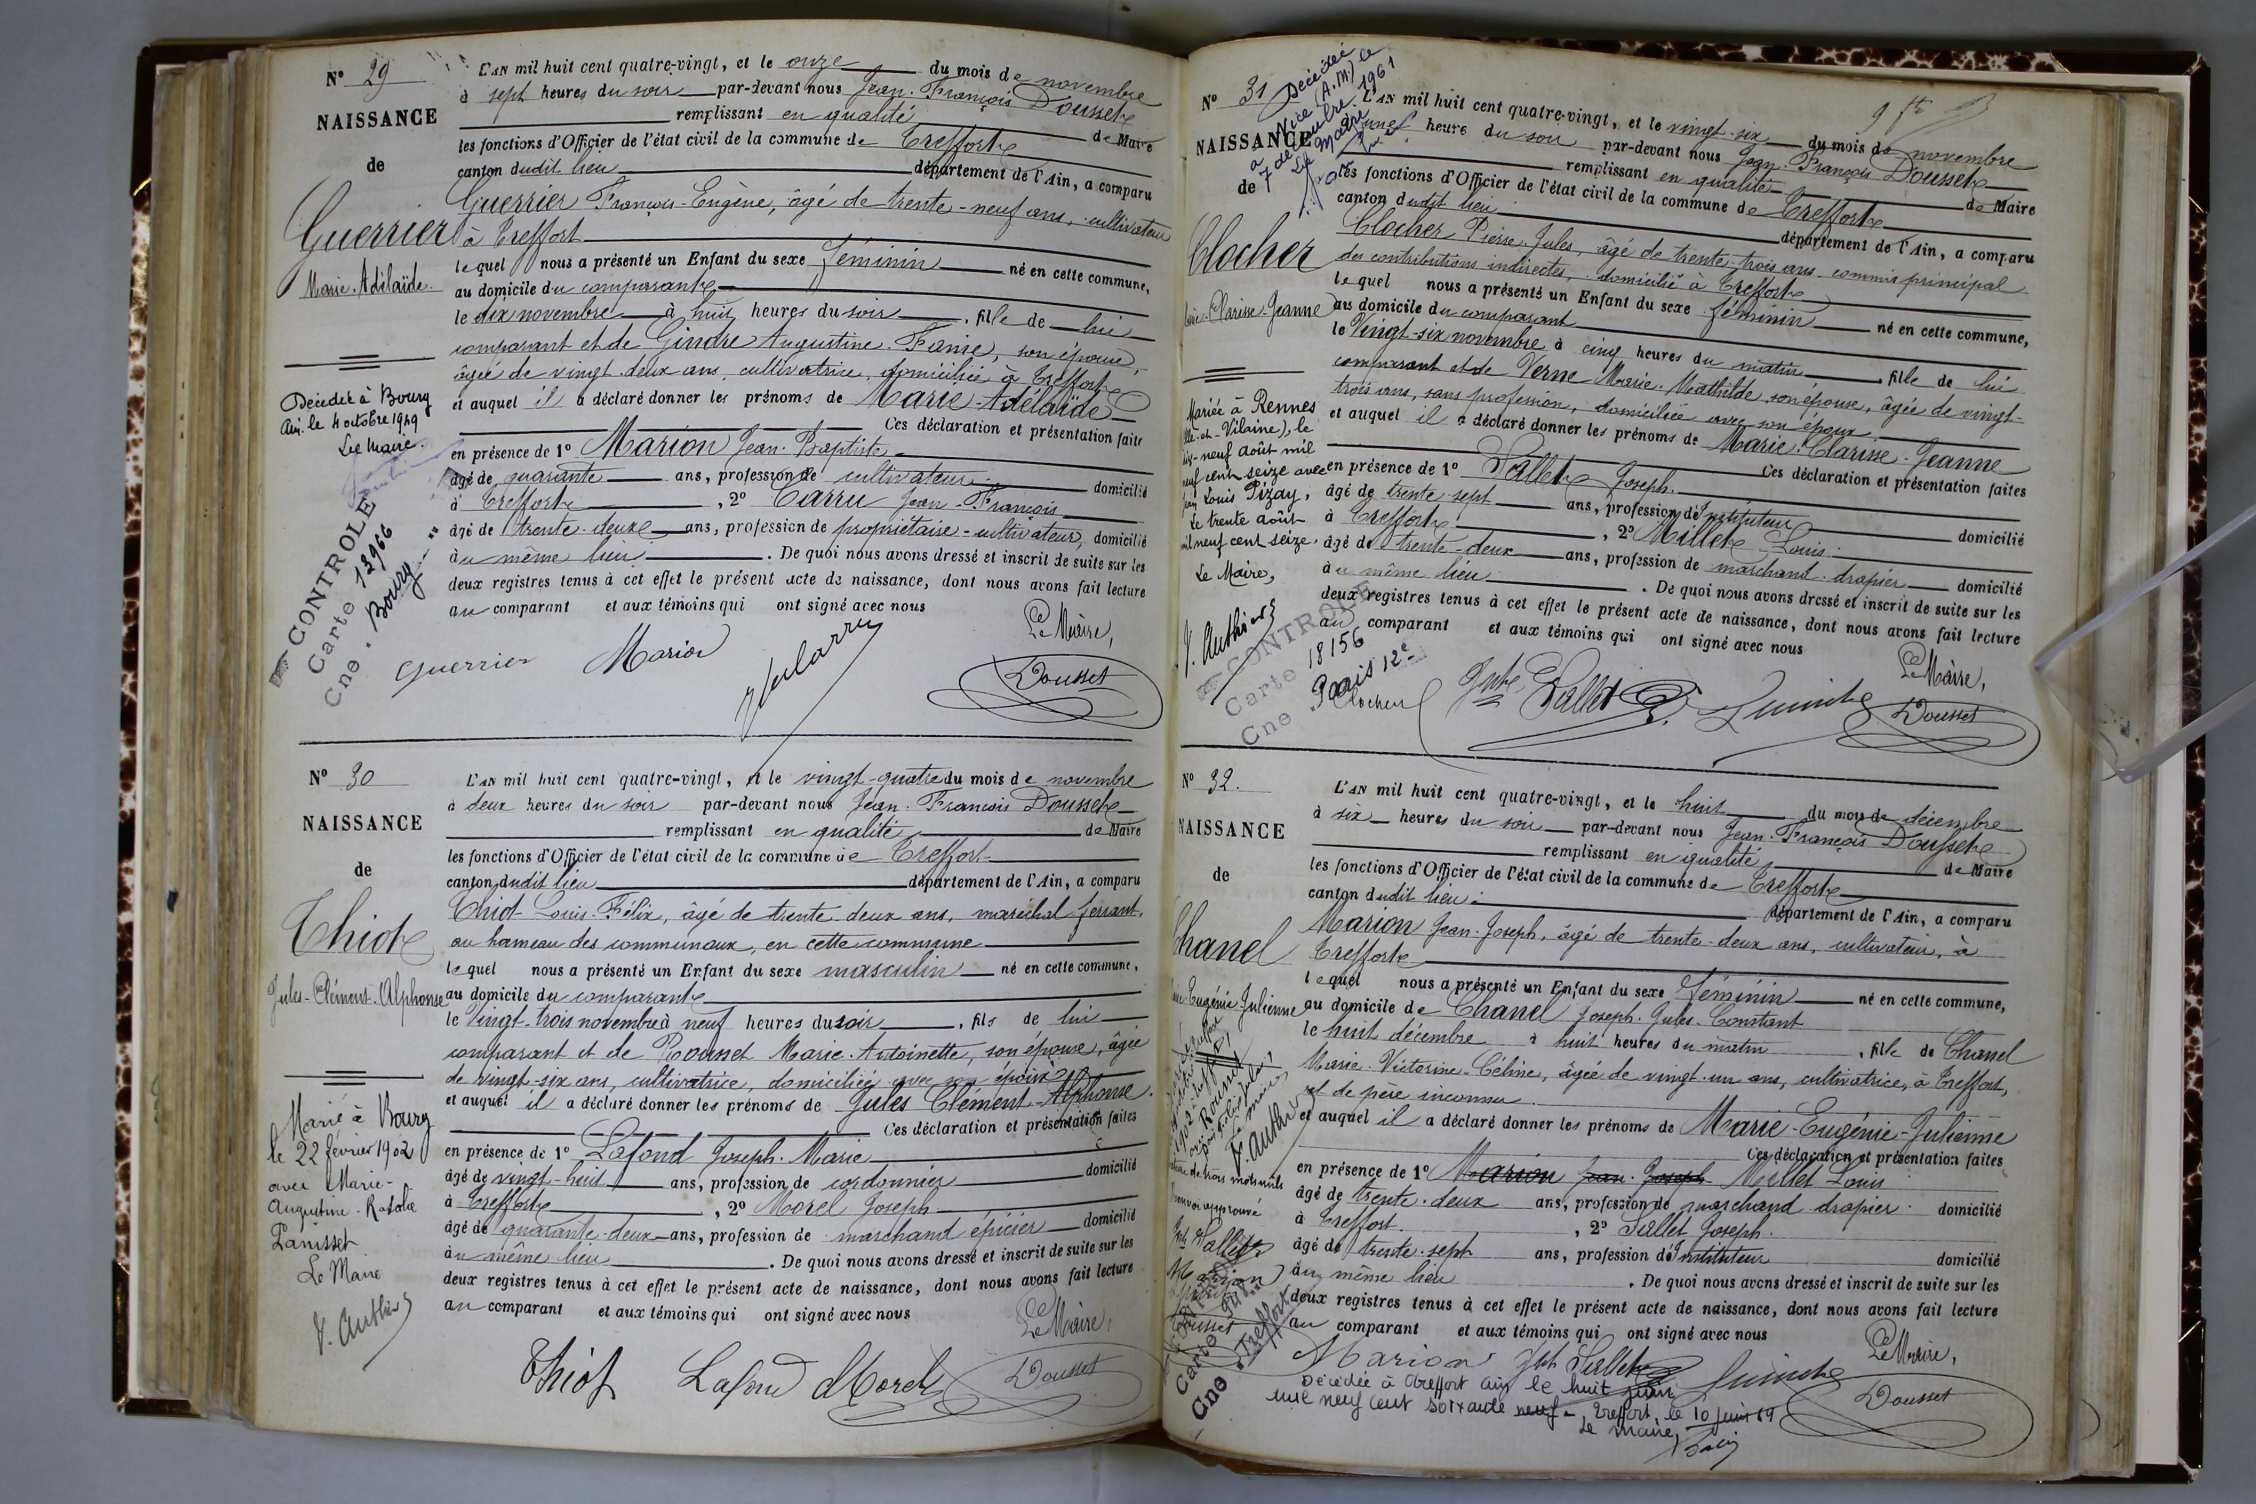 N° 29
NAISSANCE
de
Guerrier
Marie-Adélaïde.
Décédée à Bourg
Ain. le 4 octobre 1949
Le Maire.
CONTROLE
Carte 12966
Cne. Bourg
L'AN mil huit cent quatre-vingt, et le onze du mois de novembre
à sept heures du soir par-devant nous Jean-François Dousset
remplissant en qualité de Maire
les fonctions d'Officier de l'état civil de la commune de Treffort
canton dudit lieu département de l'Ain, a comparu
Guerrier François-Eugène, âgé de trente-neuf ans, cultivateur
à Treffort
lequel nous a présenté un Enfant du sexe féminin né en cette commune,
au domicile du comparant
le dix novembre à huit heures du soir, fille de lui
comparant et de Gindre Augustine Fanie, son épouse,
âgée de vingt-deux ans, cultivatrice, domiciliée à Treffort
et auquel il a déclaré donner les prénoms de Marie-Adélaïde
Ces déclaration et présentation faites
en présence de 1° Marion Jean-Baptiste
âgé de quarante ans, profession de cultivateur domicilié
à Treffort, 2° Carru Jean-François
âgé de trente-deux ans, profession de propriétaire-cultivateur, domicilié
au même lieu. De quoi nous avons dressé et inscrit de suite sur les
deux registres tenus à cet effet le présent acte de naissance, dont nous avons fait lecture
au comparant et aux témoins qui ont signé avec nous
Le Maire,
Guerrier Marion Dousset
N° 30
NAISSANCE
de
Thiot
Jules-Clément-Alphonse
Marié à Bourg
le 22 février 1902
avec Marie-
Augustine-Rosalie
Panisset
Le Maire
F. Authier
L'AN mil huit cent quatre-vingt, et le vingt-quatre du mois de novembre
à deux heures du soir par-devant nous Jean-François Dousset
remplissant en qualité de Maire
les fonctions d'Officier de l'état civil de la commune de Treffort
canton dudit lieu département de l'Ain, a comparu
Thiot Louis-Félix, âgé de trente-deux ans, maréchal ferrant,
au hameau des communaux, en cette commune
lequel nous a présenté un Enfant du sexe masculin né en cette commune,
au domicile du comparant
le vingt-trois novembre à neuf heures du soir, fils de lui
comparant et de Rousset Marie-Antoinette, son épouse, âgée
de vingt-six ans, cultivatrice, domiciliée avec son époux
et auquel il a déclaré donner les prénoms de Jules Clément-Alphonse.
Ces déclaration et présentation faites
en présence de 1° Lafond Joseph-Marie
âgé de vingt-huit ans, profession de cordonnier domicilié
à Treffort, 2° Morel Joseph
âgé de quarante-deux ans, profession de marchand épicier domicilié
au même lieu. De quoi nous avons dressé et inscrit de suite sur les
deux registres tenus à cet effet le présent acte de naissance, dont nous avons fait lecture
au comparant et aux témoins qui ont signé avec nous
Le Maire,
Thiot Lafond Morel Dousset
N° 31
NAISSANCE
de
Clocher
Marie-Clarisse-Jeanne
Décédée
à Nice (A.M.) le
7 décembre 1961
Le Maire
Mariée à Rennes
(Ille-et-Vilaine), le
dix-neuf août mil
neuf cent seize avec
Jean Louis Pizay,
Le trente août
mil neuf cent seize.
Le Maire,
F. Authier
CONTROLE
Carte 18156
Cne Paris 12e
L'AN mil huit cent quatre-vingt, et le vingt-six du mois de novembre
à une heure du soir par-devant nous Jean-François Dousset
remplissant en qualité de Maire
les fonctions d'Officier de l'état civil de la commune de Treffort
canton dudit lieu département de l'Ain, a comparu
Clocher Pierre-Jules, âgé de trente-trois ans, commis principal
des contributions indirectes, domicilié à Treffort
lequel nous a présenté un Enfant du sexe féminin né en cette commune,
au domicile du comparant
le Vingt-six novembre à cinq heures du matin, fille de lui
comparant et de Verne Marie-Mathilde son épouse, âgée de vingt-
trois ans, sans profession, domiciliée avec son époux
et auquel il a déclaré donner les prénoms de Marie-Clarisse-Jeanne
Ces déclaration et présentation faites
en présence de 1° Sallet Joseph
âgé de trente-sept ans, profession d'Instituteur domicilié
à Treffort, 2° Millet Louis
âgé de trente-deux ans, profession de marchand drapier domicilié
au même lieu. De quoi nous avons dressé et inscrit de suite sur les
deux registres tenus à cet effet le présent acte de naissance, dont nous avons fait lecture
au comparant et aux témoins qui ont signé avec nous
Le Maire,
Clocher Jph Sallet Dousset
N° 32.
NAISSANCE
de
Chanel
Marie-Eugénie-Julienne
F. Authier
Carte
Cne. Treffort
L'AN mil huit cent quatre-vingt, et le huit du mois de décembre
à six heures du soir par-devant nous Jean-François Dousset
remplissant en qualité de Maire
les fonctions d'Officier de l'état civil de la commune de Treffort
canton dudit lieu département de l'Ain, a comparu
Marion Jean-Joseph, âgé de trente-deux ans, cultivateur, à
Treffort
lequel nous a présenté un Enfant du sexe féminin né en cette commune,
au domicile de Chanel Joseph-Jules-Constant
le huit décembre à huit heures du matin, fille de Chanel
Marie-Victorine-Céline, âgée de vingt-un ans, cultivatrice, à Treffort,
et de père inconnu.
et auquel il a déclaré donner les prénoms de Marie-Eugénie-Julienne
Ces déclaration et présentation faites
en présence de 1° Marion Jean-Joseph Millet Louis
âgé de trente-deux ans, profession de marchand drapier domicilié
à Treffort, 2° Sallet Joseph.
âgé de trente-sept ans, profession d'Instituteur domicilié
au même lieu. De quoi nous avons dressé et inscrit de suite sur les
deux registres tenus à cet effet le présent acte de naissance, dont nous avons fait lecture
au comparant et aux témoins qui ont signé avec nous
Le Maire,
Marion Jph Sallet Dousset
Décédée à Treffort Ain le huit juin
mil neuf cent soixante neuf - Treffort, le 10 juin 69
Le Maire,